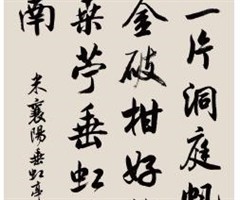 一片洞庭帆
金破柑好
桑苧垂虹
南
米襄陽垂虹亭